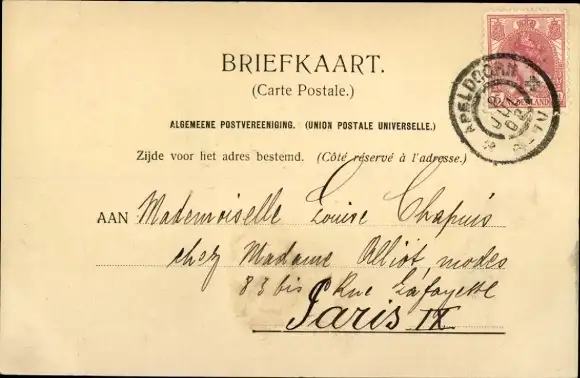 BRIEFKAART.
(Carte Postale.)
ALGEMEENE POSTVEREENIGING. (UNION POSTALE UNIVERSELLE.)
Zijde voor het adres bestemd. (Côté réservé à l'adresse.)
AAN Mademoiselle Louise Chapuis
chez Madame Alliot, modes
83 bis Rue Lafayette
Paris IX
NEDERLAND
APELDOORN